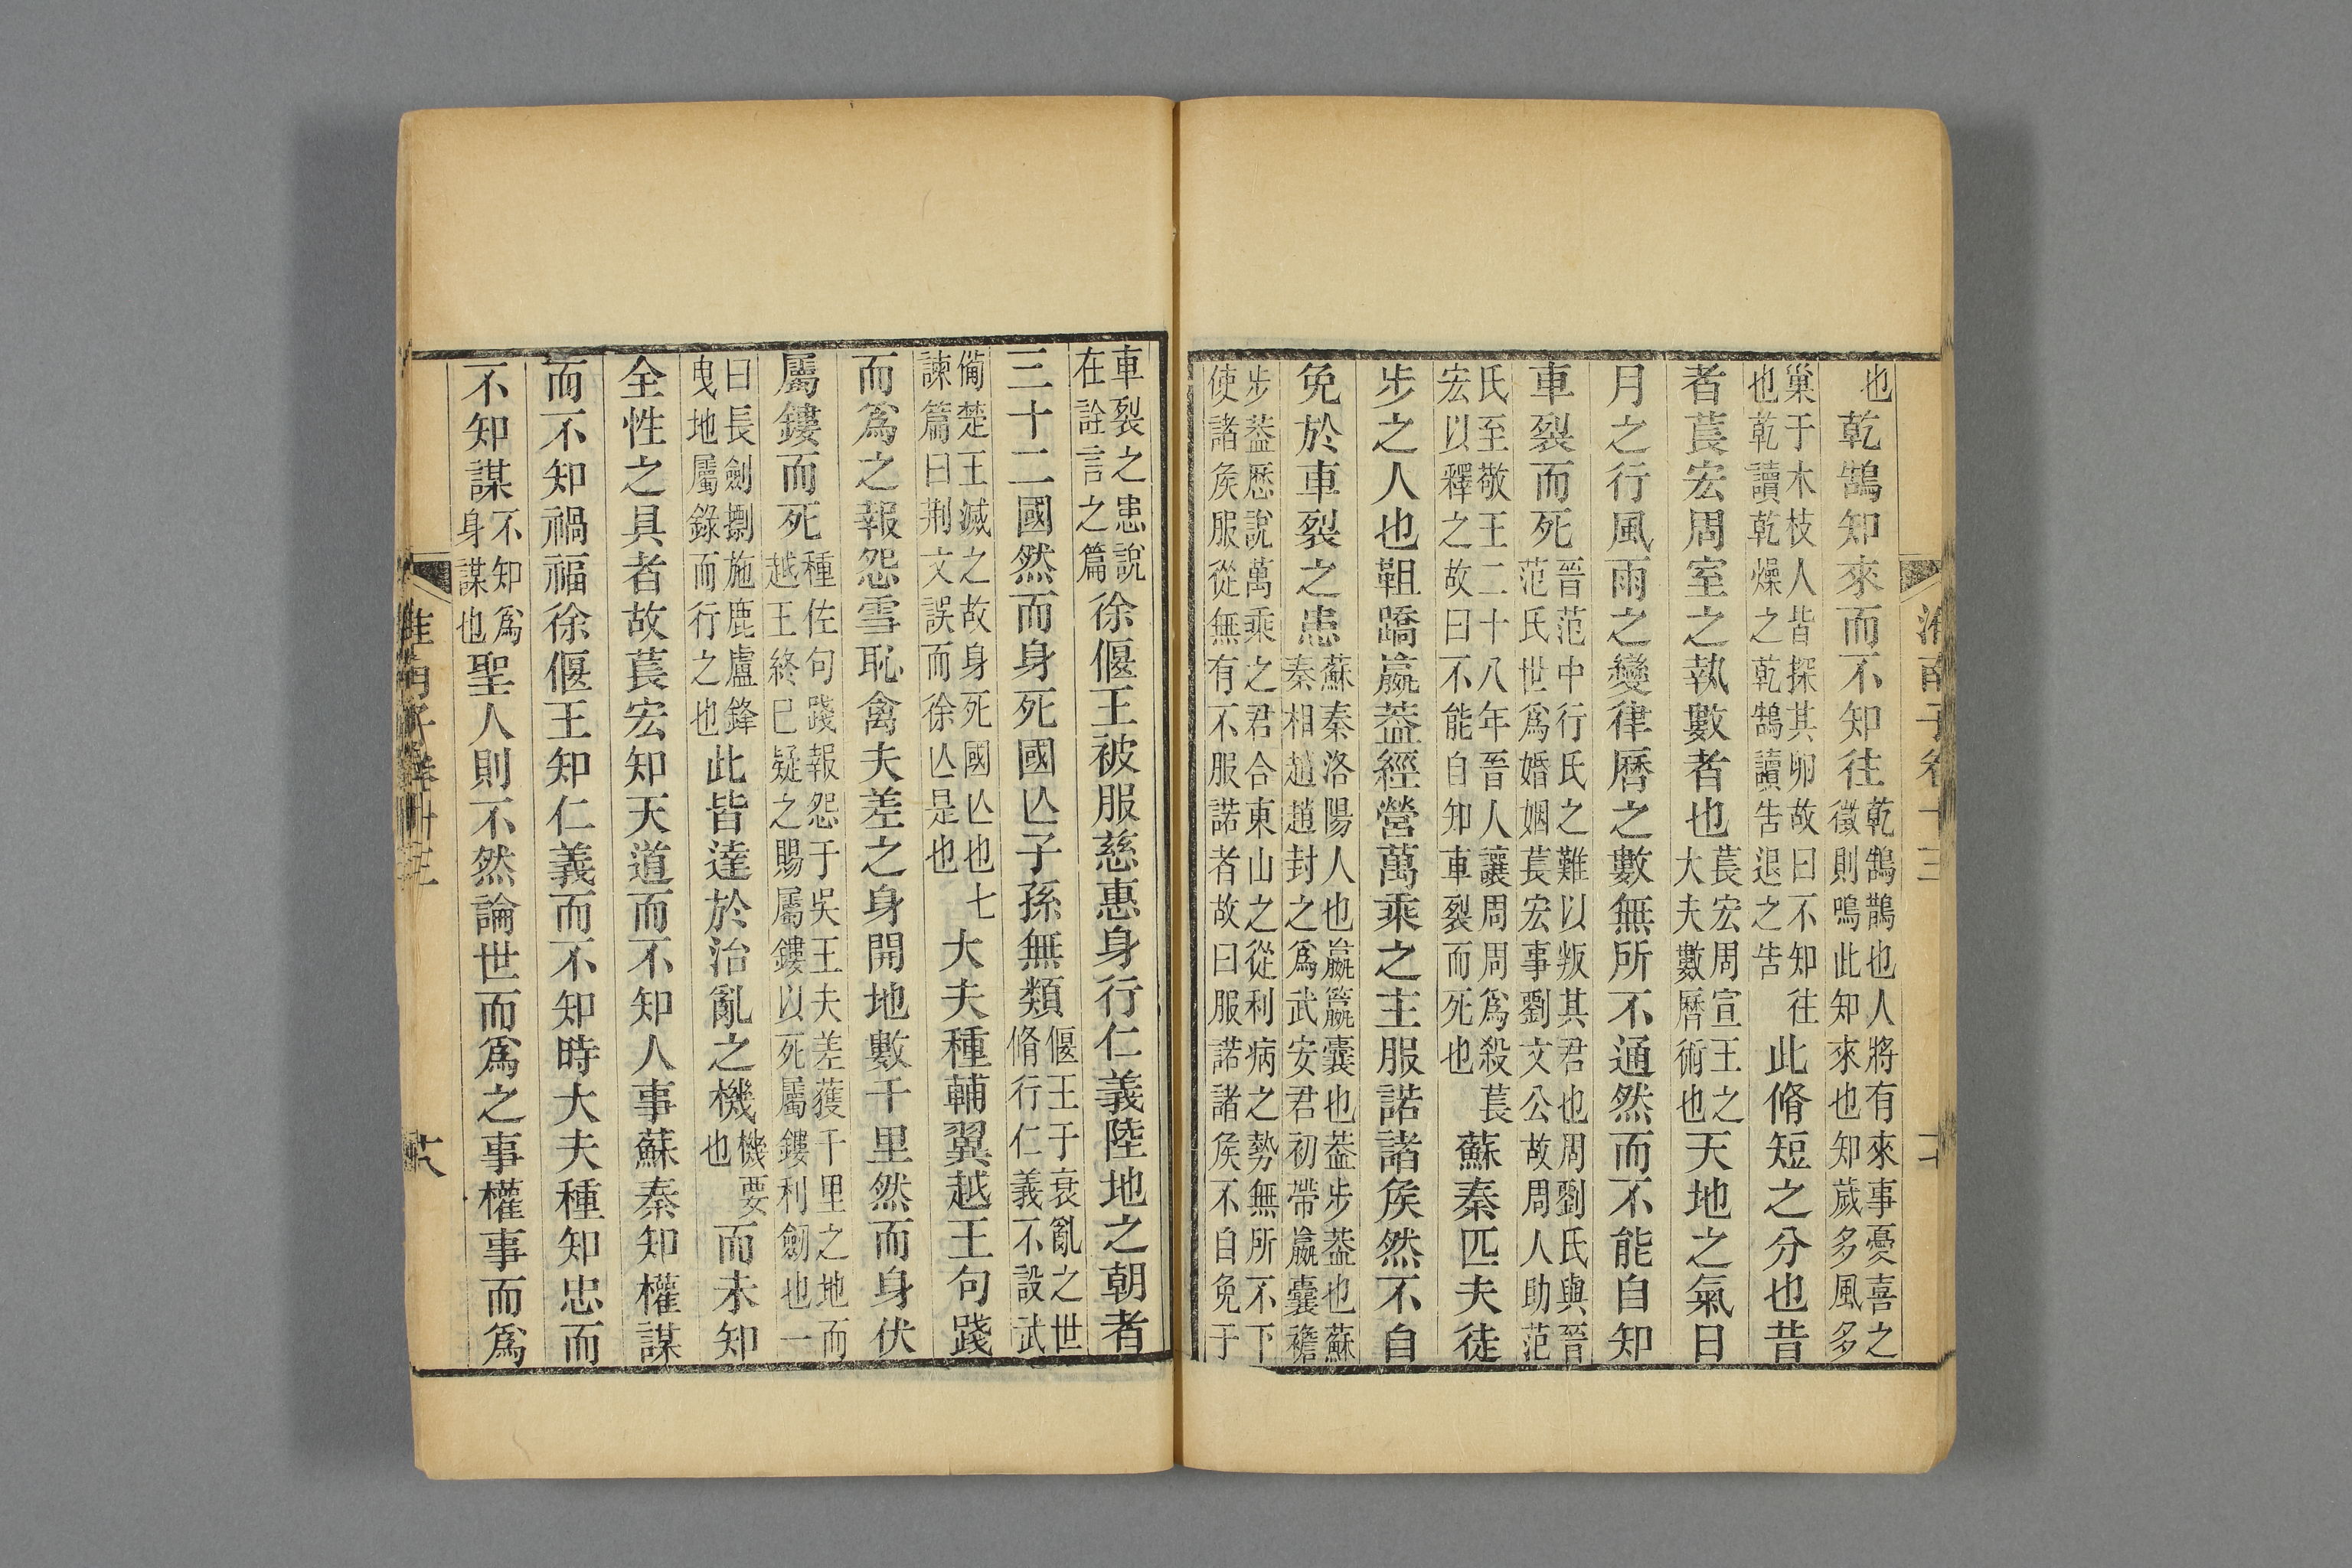 也乾鵠知來而不知往乾鵠鵲也人將有來事憂喜之徵則鳴此知來也知歲多風多
巢于木枝人皆探其卵故曰不知往也乾讀乾燥之乾鵠讀告退之告此脩短之分也昔
者萇宏周室之執數者也萇宏周宣王之大夫數曆術也天地之氣日
月之行風雨之變律曆之數無所不通然而不能自知
車裂而死晉范中行氏之難以叛其君也周劉氏與晉范氏世爲婚姻萇宏事劉文公故周人助范
氏至敬王二十八年晉人讓周周爲殺萇宏以釋之故曰不能自知車裂而死也蘇秦匹夫徒
步之人也靻蹻嬴葢經營萬乘之主服諾諸矦然不自
免於車裂之患蘇秦洛陽人也嬴籯囊也葢步葢也蘇秦相趙趙封之爲武安君初帶嬴囊襜
步葢歷說萬乘之君合東山之從利病之勢無所不下使諸矦服從無有不服諾者故曰服諾諸矦不自免于
車裂之患說在詮言之篇徐偃王被服慈惠身行仁義陸地之朝者
三十二國然而身死國亾子孫無類偃王于衰亂之世脩行仁義不設武
備楚王滅之故身死國亾也七諫篇曰荆文誤而徐亾是也大夫種輔翼越王句踐
而爲之報怨雪恥禽夫差之身開地數千里然而身伏
屬鏤而死種佐句踐報怨于吳王夫差獲千里之地而越王終已疑之賜屬鏤以死屬鏤利劒也一
曰長劍摽施鹿盧鋒曳地屬錄而行之也此皆達於治亂之機機要也而未知
全性之具者故萇宏知天道而不知人事蘇秦知權謀
而不知禍福徐偃王知仁義而不知時大夫種知忠而
不知謀不知爲身謀也聖人則不然論世而爲之事權事而爲